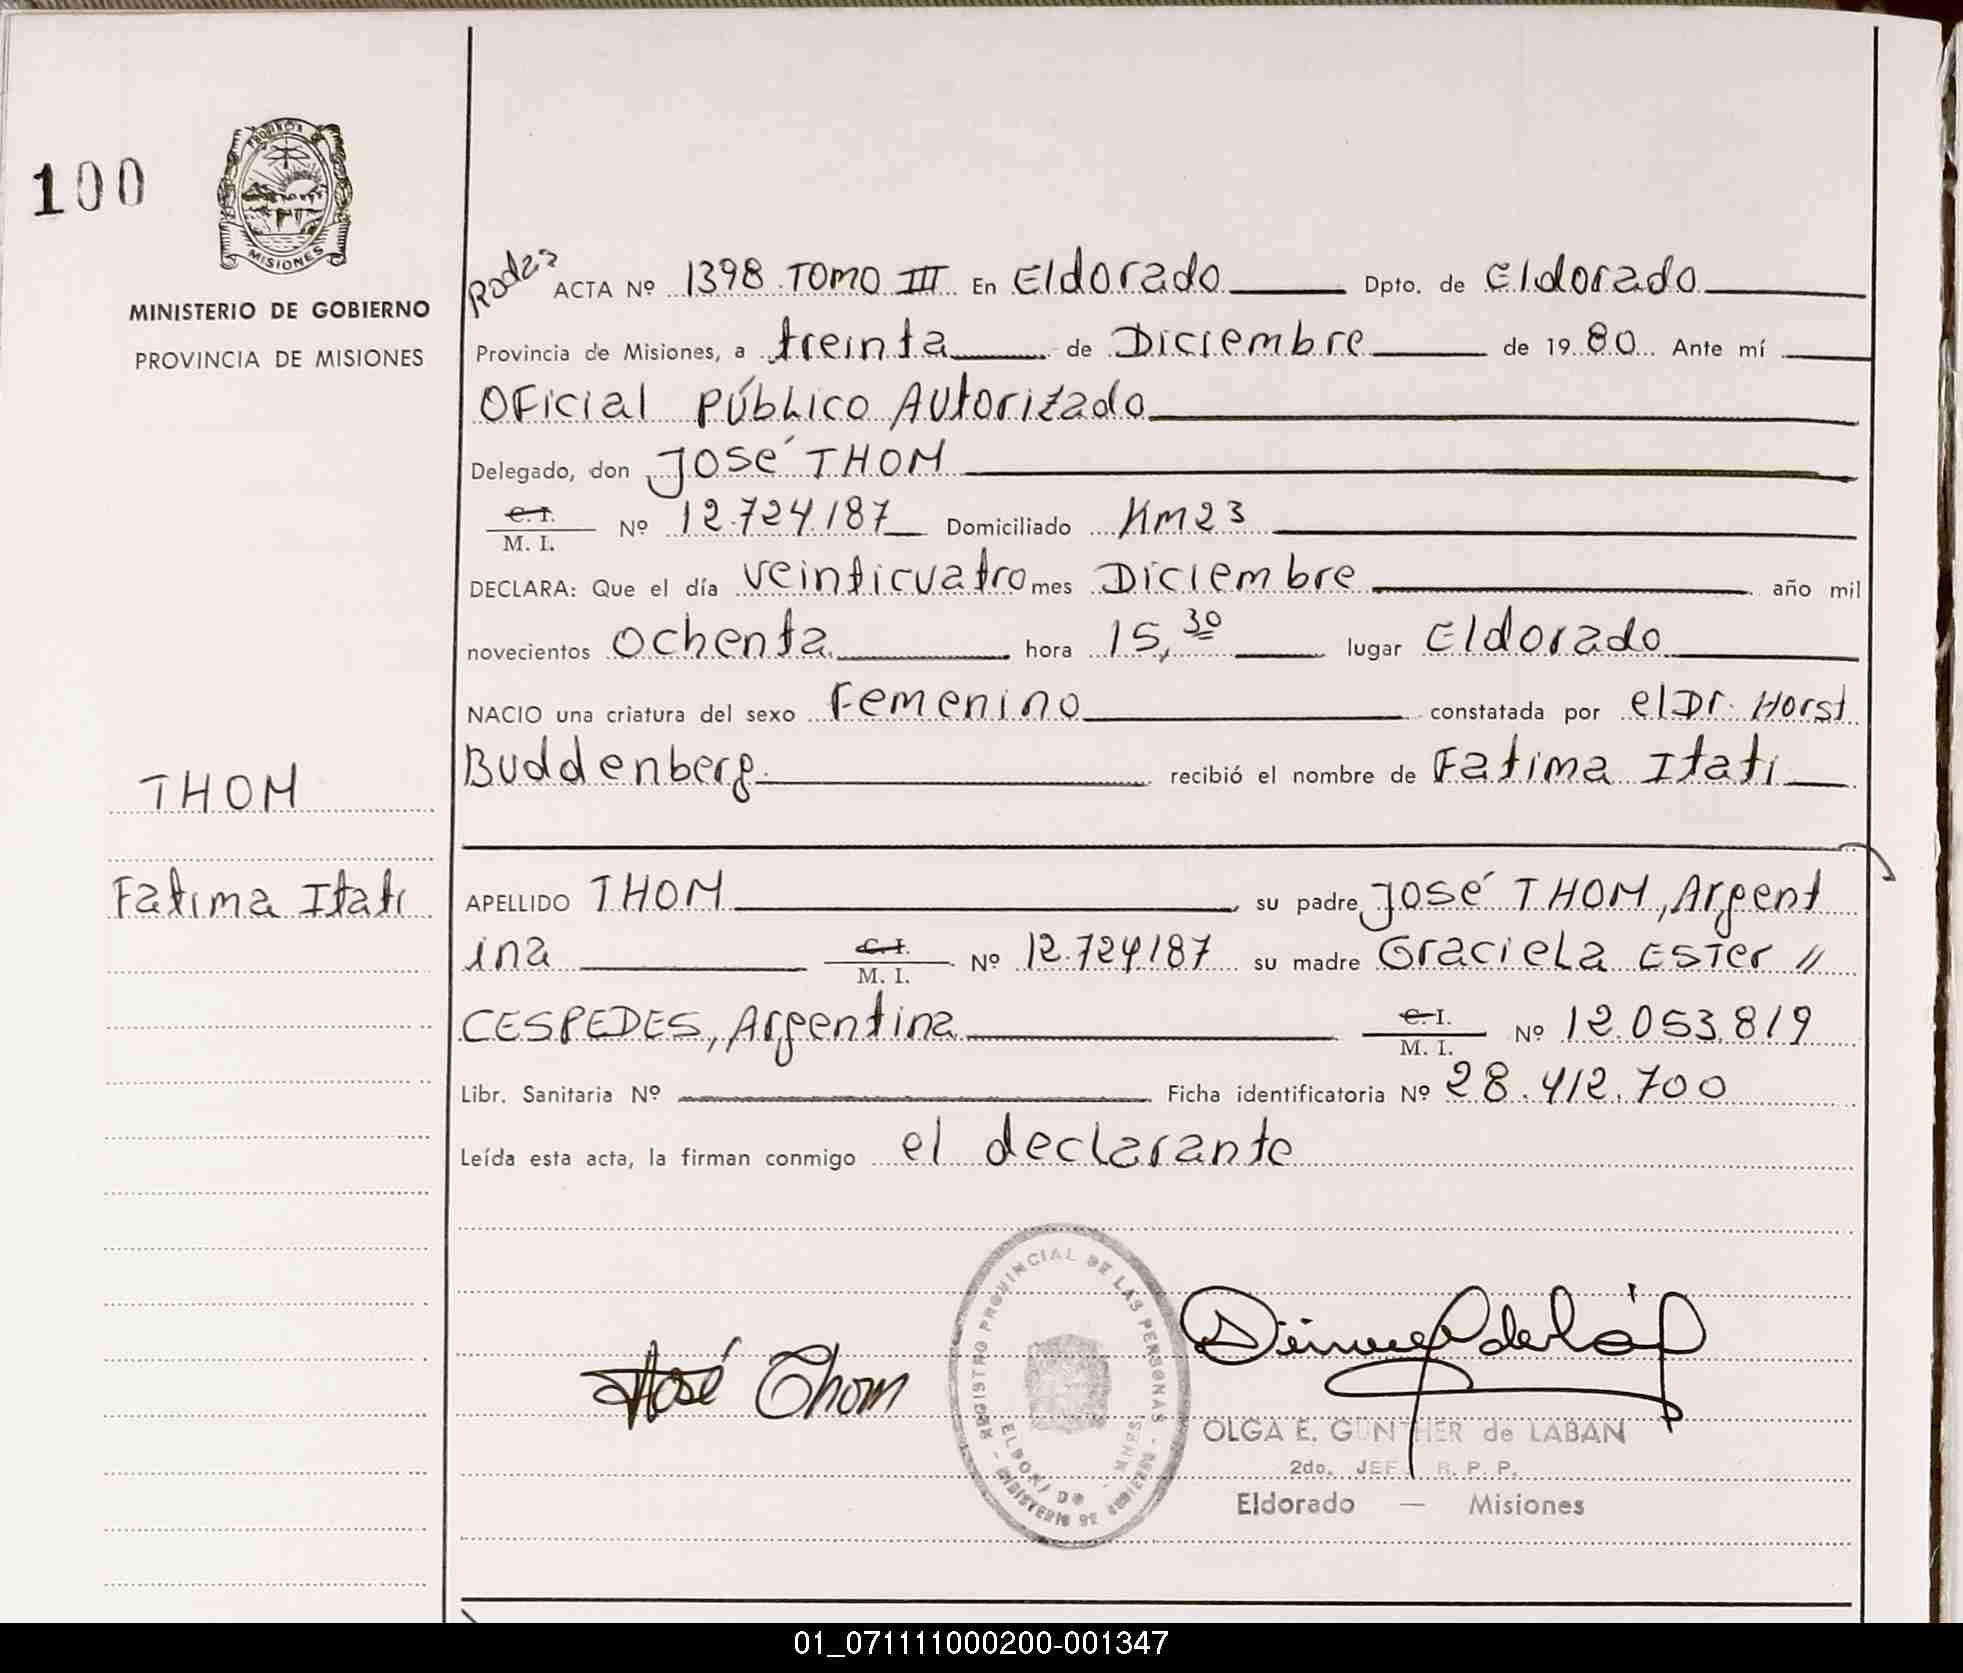 100
PROVINCIA DE
MISIONES
MINISTERIO DE GOBIERNO
PROVINCIA DE MISIONES
THOM
Fatima Itati
ACTA Nº 1398 TOMO III En Eldorado Dpto. de Eldorado
Provincia de Misiones, a treinta de Diciembre de 1980 Ante mí
OFicial Público Autorizado
Delegado, don José THOM
C. I.
M. I. Nº 12.724.187 Domiciliado Km23
DECLARA: Que el día veinticuatro mes Diciembre año mil
novecientos ochenta hora 15,30 lugar Eldorado
NACIO una criatura del sexo Femenino constatada por el Dr. Horst
Buddenberg recibió el nombre de Fatima Itati
APELLIDO THOM su padre José THOM, Argent
ina C. I.
M. I. Nº 12.724.187 su madre Graciela ESTer //
CESPEDES, Argentina C. I.
M. I. Nº 12.053.819
Libr. Sanitaria Nº Ficha identificatoria Nº 28.412.700
Leída esta acta, la firman conmigo el declarante
REGISTRO PROVINCIAL DE LAS PERSONAS - MINISTERIO DE GOBIERNO -
José Thom
OLGA E. GUNTHER de LABAN
2do. JEF R. P. P.
Eldorado — Misiones
01_071111000200-001347